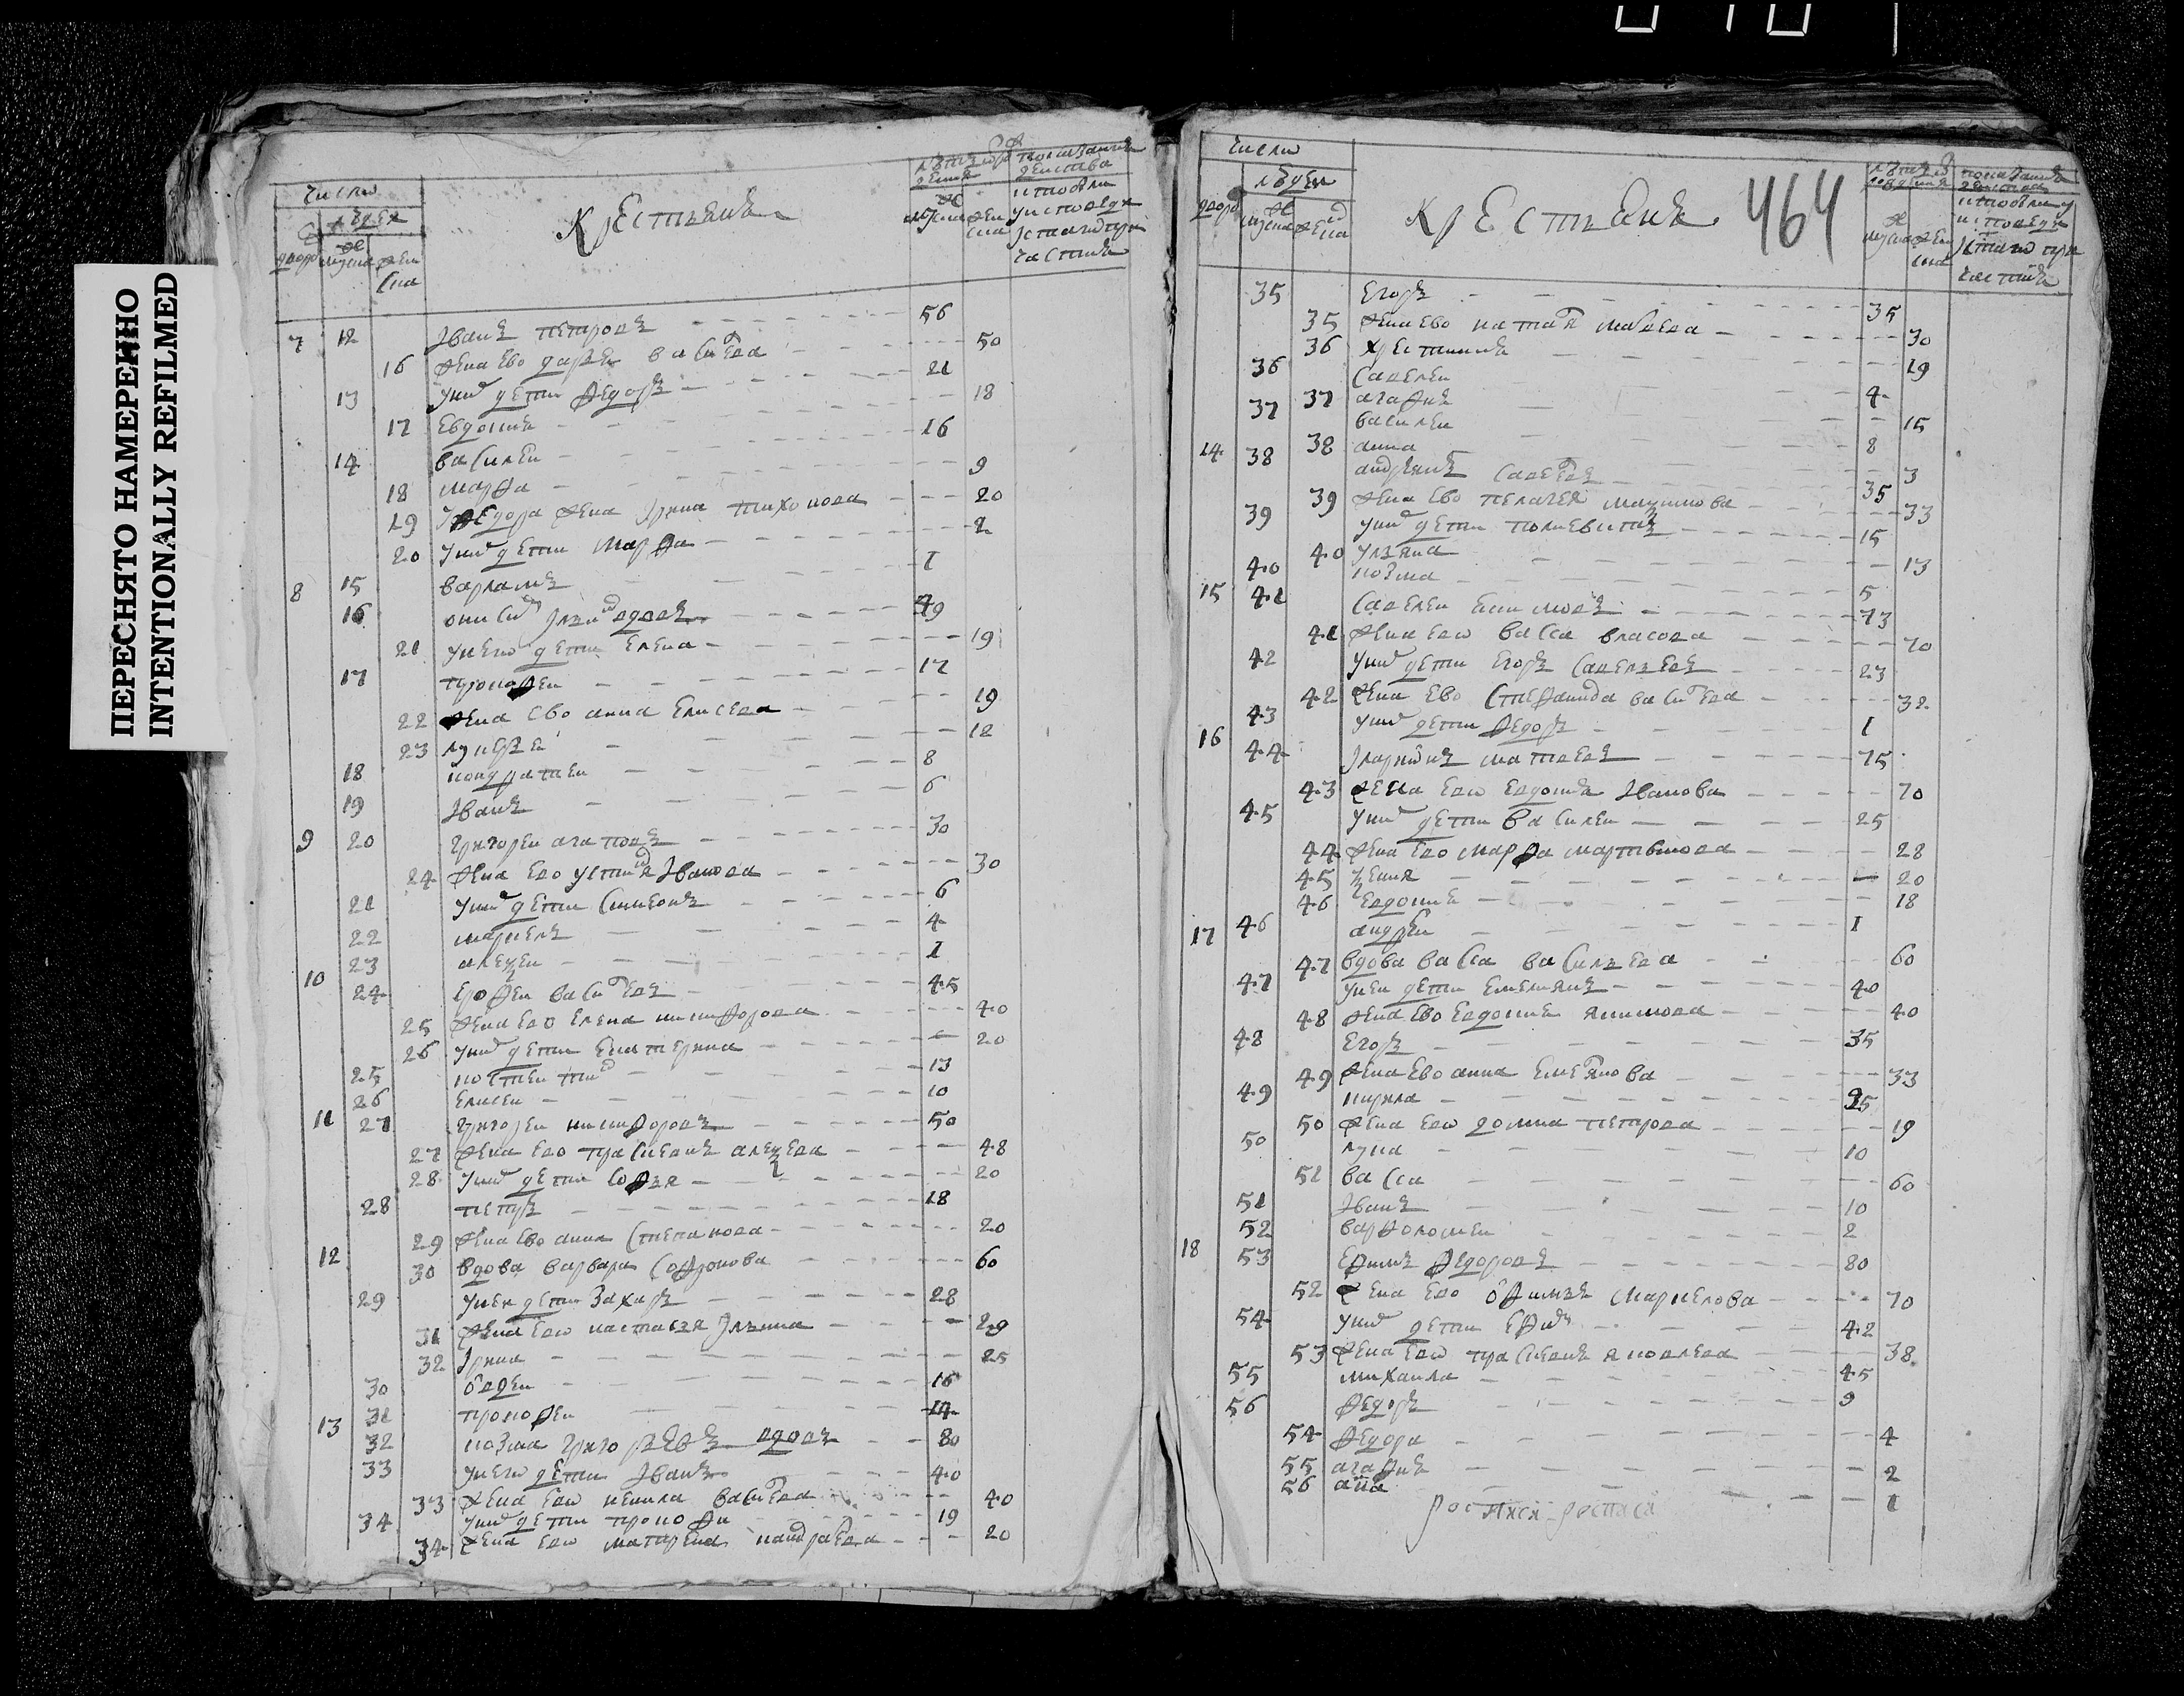 ПЕРЕСНЯТО НАМЕРЕННО
INTENTIONALLY REFILMED
число
людей
двора мужска женска
Крестьяне
мужска женска
7 12 Иванъ петровъ 56
16 жена ево дарья васильева 50
13 у них дети федоръ 21
17 Евдокия 18
14 василеи 16
18 марфа 9
19 У федора жена Ирина тихонова 20
20 у них дети марфа 2
8 15 варламъ 1
16 вдовъ 49
21 у него дети елена 19
17 прокофеи 17
22 жена ево анна елисева 19
23 лукеря 12
18 кондратеи 8
19 Иванъ 6
9 20 григореи агаповъ 30
24 жена ево устиния Иванова 30
21 у них дети симеонъ 6
22 маркелъ 4
23 алексеи 1
10 24 ерофеи васильевъ 45
25 жена ево елена никифорова 40
26 у них дети екатерина 20
25 костентин 13
26 елисеи 10
11 27 григореи никифоровъ 50
27 жена ево прасковя алексева 48
28 у них дети софья 20
28 петръ 18
29 жена ево анна степанова 20
12 30 вдова варвара софронова 60
29 у неи дети захаръ 28
31 жена ево настасья Ильина 29
32 Ирина 25
30 овдеи 16
31 прокофеи 14
13 32 козма григорьевъ вдовъ 80
33 у него дети Иванъ 40
33 жена ево ненила васильева 40
34 у них дети прокофи 19
34 жена ево матрена кандратева 20
число
людей
двора мужска женска
Крестьяне 464
мужска женска
35 Егоръ 35
35 жена ево наталя 30
36 христиния 19
36 савелеи 4
37 агафия 15
37 василеи 8
38 анна 3
14 38 андреянъ савельевъ 35
39 жена ево пелагея максимова 33
39 у них дети поликвитъ 15
40 ульяна 13
40 козма 5
15 41 савелеи 73
41 жена ево васса власова 70
42 у них дети егоръ савельевъ 23
42 жена ево степанида васильева 32
43 у них дети федоръ 1
16 44 Иларионъ матвеевъ 75
43 жена ево евдокия Иванова 70
45 у них дети василеи 25
44 жена ево марфа мартынова 28
45 ксения 20
46 евдокия 18
46 андреи 1
17 47 вдова васса васильева 60
47 у неи дети емельянъ 40
48 жена ево евдокия якимова 40
48 Егоръ 35
49 жена ево анна емельянова 33
49 кирила 25
50 жена ево домна петрова 19
50 лука 10
51 васса 60
51 Иванъ 10
52 варфоломеи 2
18 53 ефимъ федоровъ 80
52 жена ево офимья маркелова 70
54 у них дети ефимъ 42
53 жена ево прасковя яковлева 38
55 михаила 45
56 федоръ 9
54 федора 4
55 агафия 2
56 анна 1